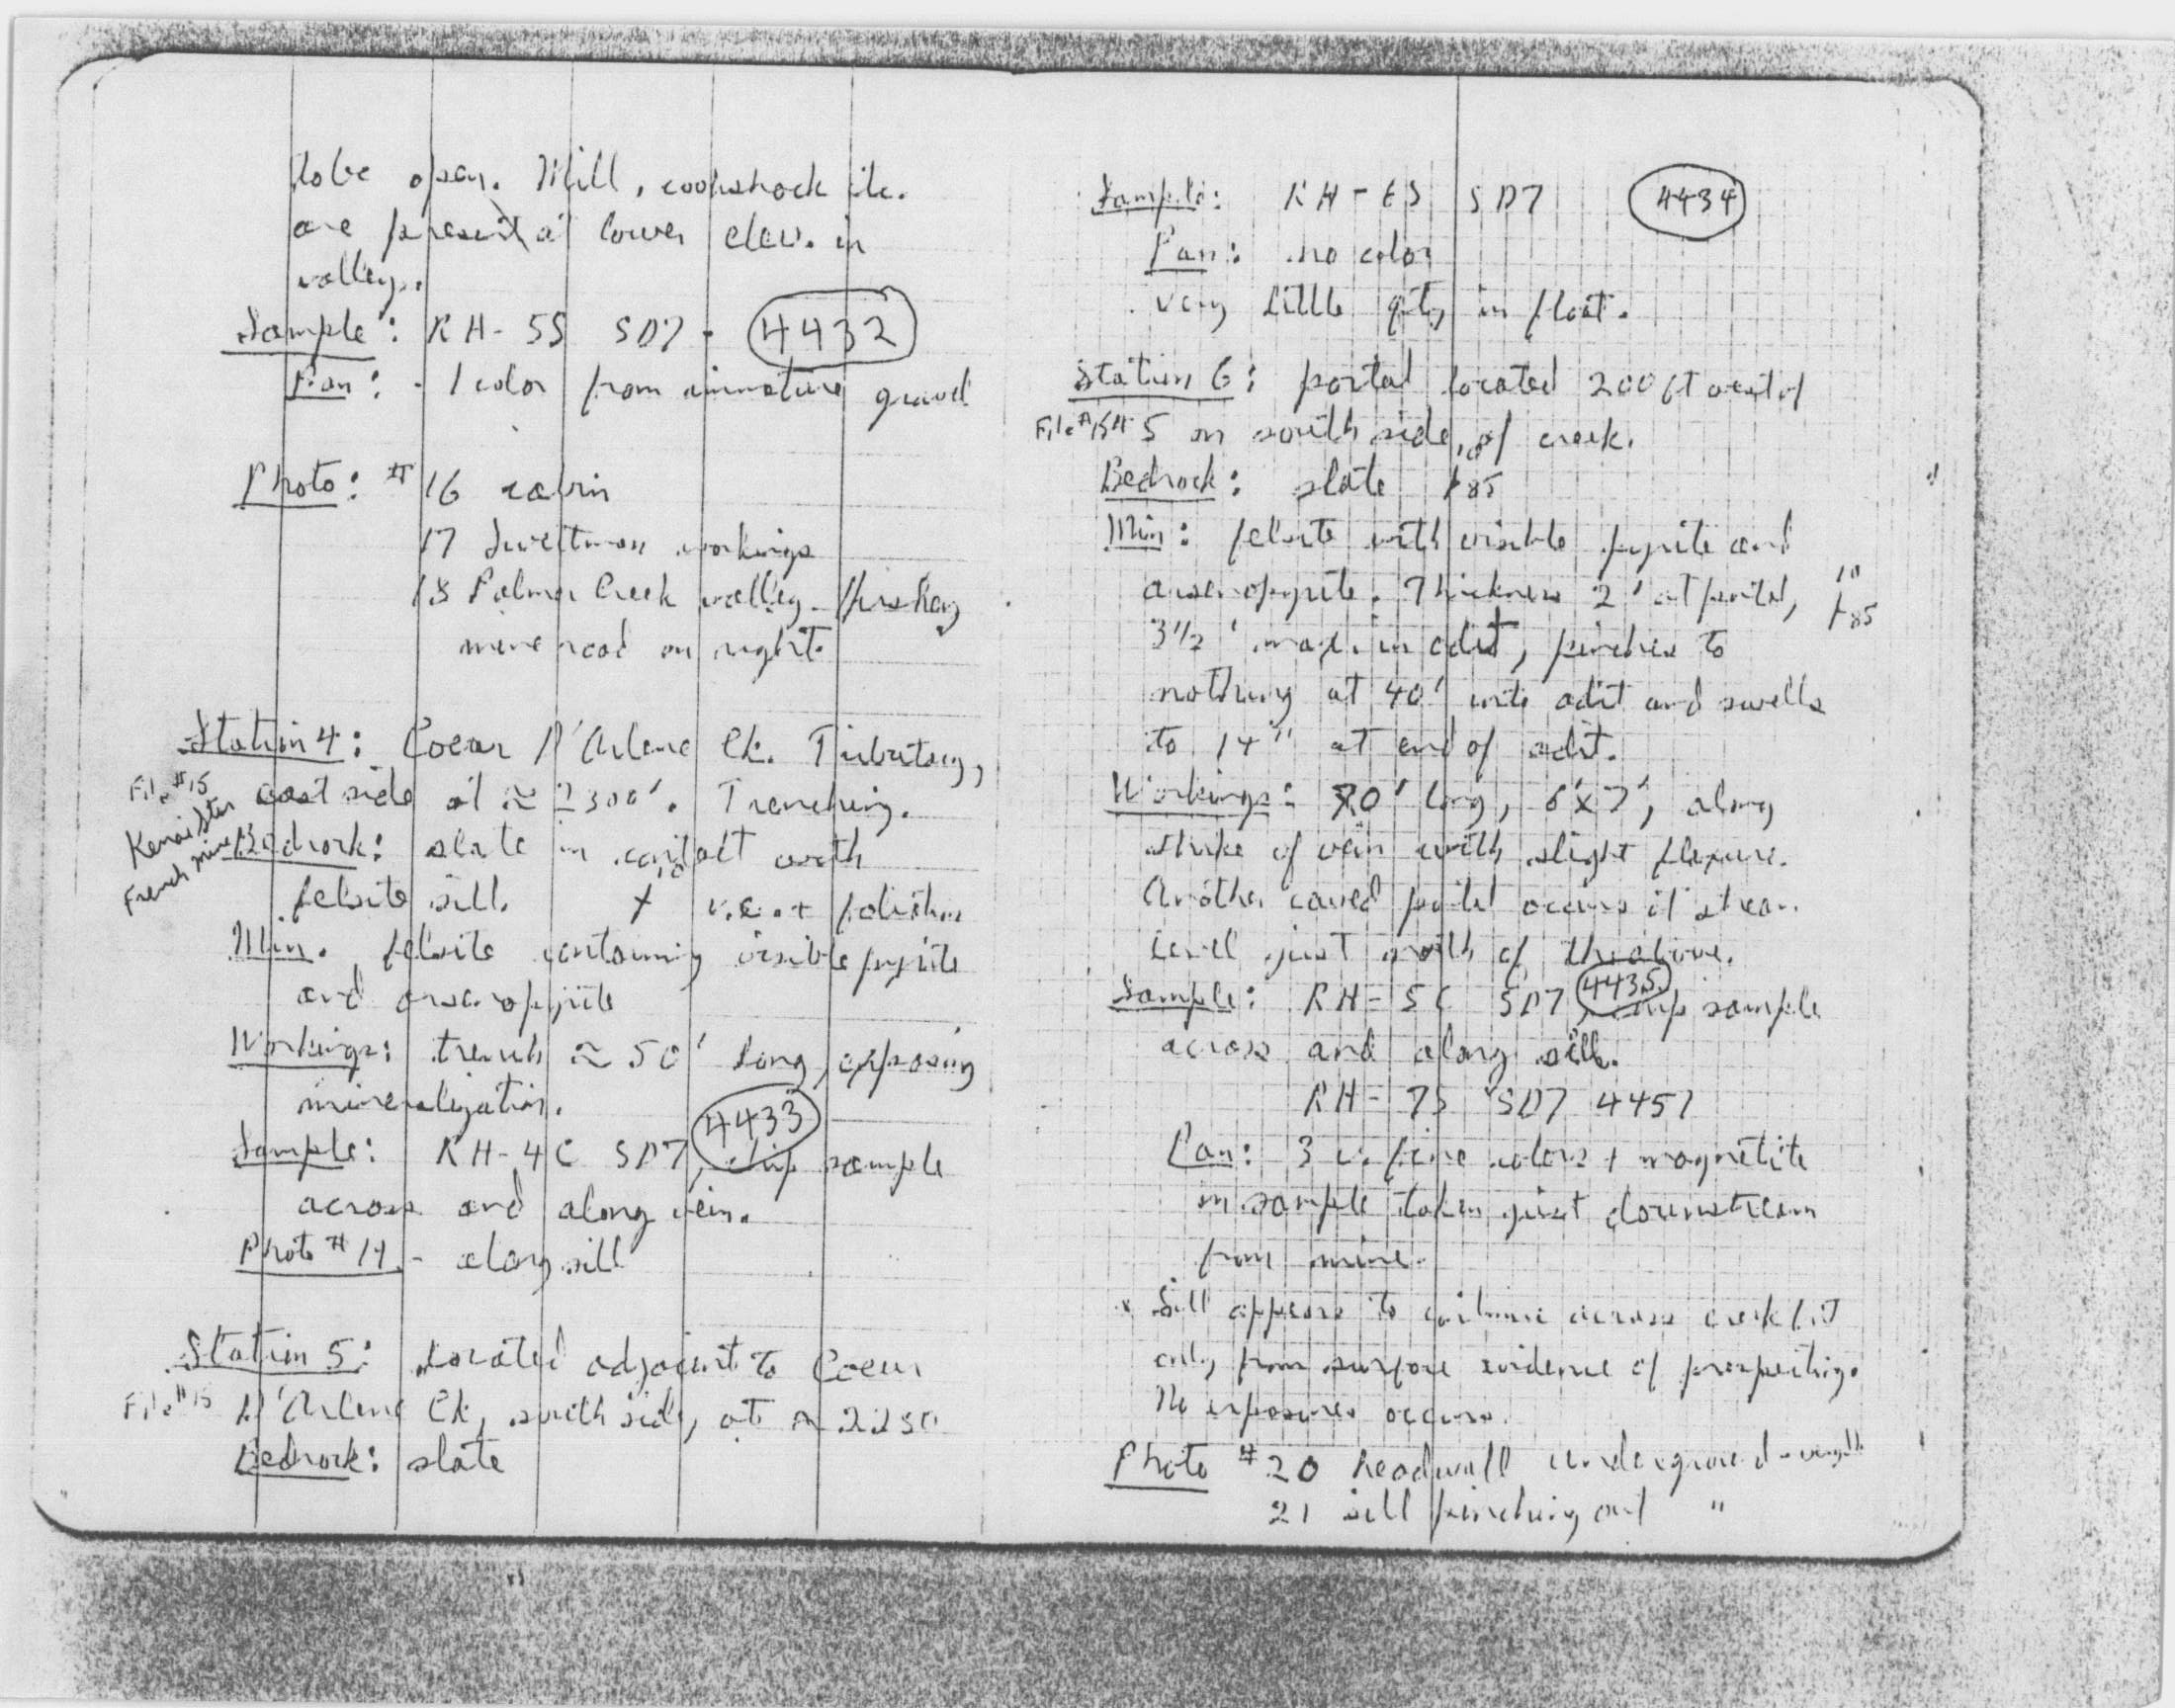 to be open. Mill, cookshack etc.
are present at lower elev. in
valley.
Sample: RH-5S SD7 - 4432
Pan: - 1 color from immature gravel
Photo: #16 cabin
17 Sweetman workings
18 Palmer Creek valley - Hirshey
mine road on right.
Station 4: Coeur D'Arlene Ck. Tributary,
File #15
east side at ≈ 2300'. Trenching.
Kenai Star
French mine
Bedrock: slate in contact with
felsite sill. 10
Min. felsite containing visible pyrite
and arsenopyrite
Workings: trench ≈ 50' long, exposing
mineralization.
Sample: RH-4C SD7, 4433 chip sample
across and along vein.
Photo #19 - along sill
Station 5: Located adjacent to Coeur
File #15
D'Arlene Ck, south side, at ≈ 2250
Bedrock: slate
Sample: RH-6S SD7 4434
Pan: no color
very little qtz in float.
Station 6: portal located 200 ft west of
File #15 #5 on south side of creek.
Bedrock: slate 10 85
Min: felsite with visible pyrite and
arsenopyrite. Thickness 2' at portal, 10 85
3 1/2' max. in adit, pinches to
nothing at 40' into adit and swells
to 14" at end of adit.
Workings: 70' long, 6'x7', along
strike of vein with slight flexure.
Another caved portal occurs at stream
level just north of the above.
Sample: RH-5C SD7 4435, chip sample
across and along sill.
RH-7S SD7 4457
Pan: 3 v. fine colors + magnetite
in sample taken just downstream
from mine.
* Sill appears to continue across creek but
only from surface evidence of prospecting.
No exposures occurs.
Photo #20 headwall underground
21 sill pinching out "